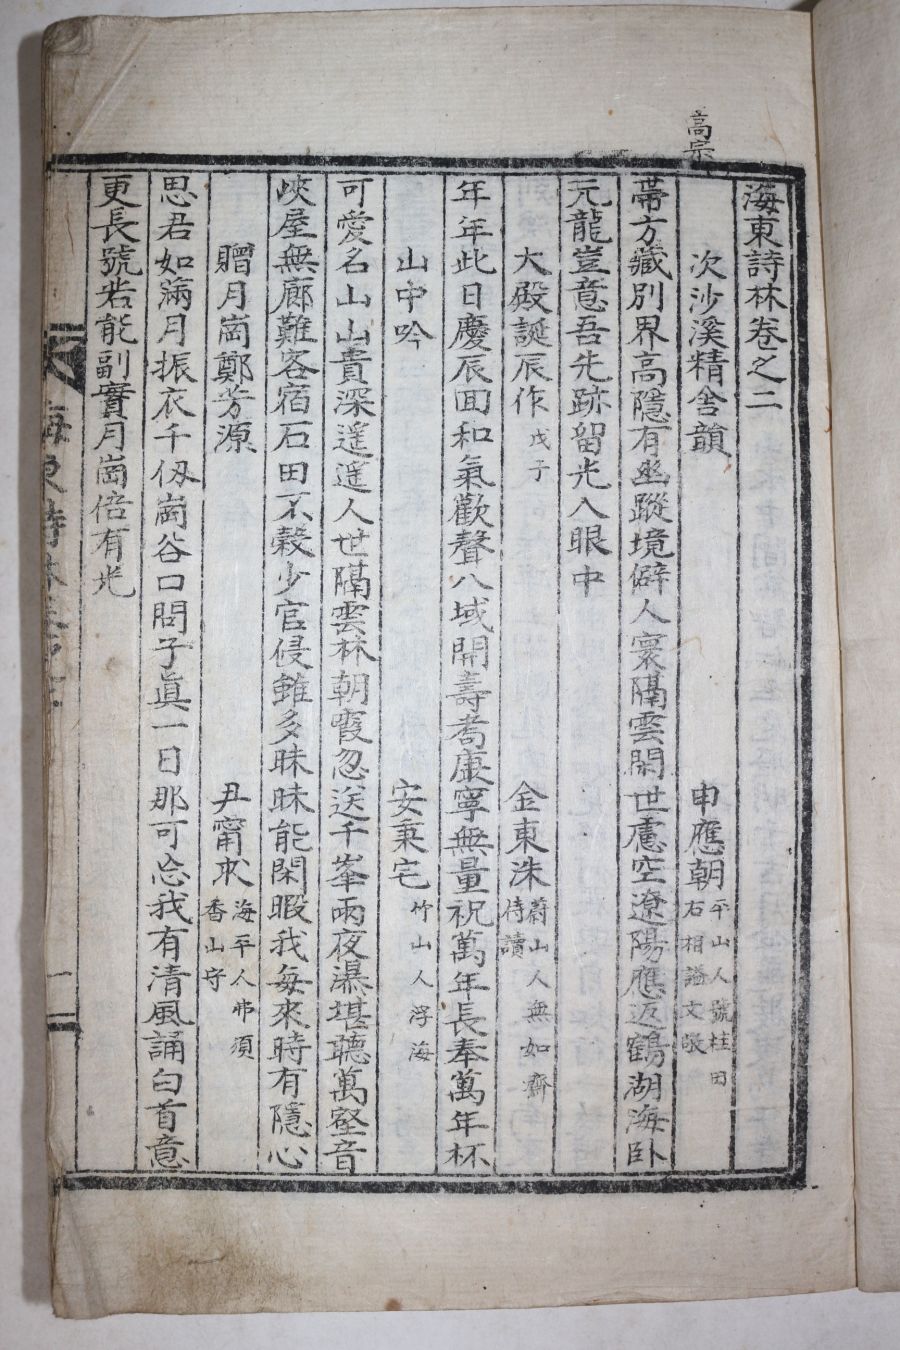 高宗
海東詩林卷之二
次沙溪精舍韻 申應朝 平山人號桂田
右相謚文敬
帶方藏別界高隱有幽蹤境僻人寰隔雲閑世慮空遼陽應返鶴湖海臥
元龍豈意吾先跡留光入眼中
大殿誕辰作 戊子 金東洙 蔚山人無如齋
侍讀
年年此日慶辰回和氣歡聲八域開壽耉康寧無量祝萬年長奉萬年杯
山中吟 安秉宅 竹山人浮海
可愛名山山貴深遙遙人世隔雲林朝霞忽送千峯雨夜瀑堪聽萬壑音
峽屋無廊難客宿石田不穀少官侵雖多昧昧能閑暇我每來時有隱心
贈月崗鄭芳源 尹甯求 海平人弗須
香山守
思君如滿月振衣千仭崗谷口問子眞一日那可忘我有淸風誦白首意
更長號若能副實月崗倍有光
海東詩林卷之二 一